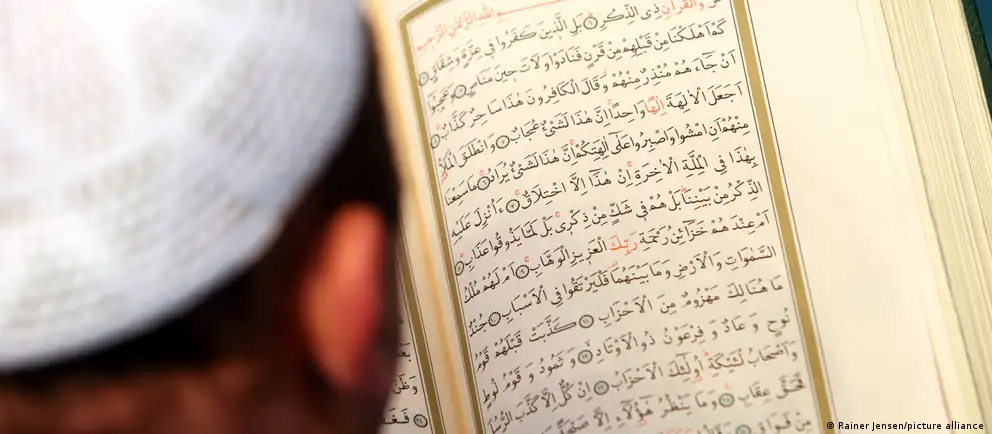 الله الرحمن الرحيم
ص وَالْقُرْاٰنِ ذِى الذِّكْرِ ۝١ بَلِ الَّذِينَ كَفَرُوا فِى عِزَّةٍ وَشِقَاقٍ ۝٢
كَمْ اَهْلَكْنَا مِنْ قَبْلِهِمْ مِنْ قَرْنٍ فَنَادَوْا وَلَاتَ حِينَ مَنَاصٍ ۝٣ وَعَجِبُوا
اَنْ جَاءَهُمْ مُنْذِرٌ مِنْهُمْ وَقَالَ الْكَافِرُونَ هٰذَا سَاحِرٌ كَذَّابٌ ۝٤
اَجَعَلَ الْاٰلِهَةَ اِلٰهًا وَاحِدًا اِنَّ هٰذَا لَشَىْءٌ عُجَابٌ ۝٥ وَانْطَلَقَ الْمَلَاُ
مِنْهُمْ اَنِ امْشُوا وَاصْبِرُوا عَلٰى اٰلِهَتِكُمْ اِنَّ هٰذَا لَشَىْءٌ يُرَادُ ۝٦ مَا سَمِعْنَا
بِهٰذَا فِى الْمِلَّةِ الْاٰخِرَةِ اِنْ هٰذَا اِلَّا اخْتِلَاقٌ ۝٧ ءَاُنْزِلَ عَلَيْهِ
الذِّكْرُ مِنْ بَيْنِنَا بَلْ هُمْ فِى شَكٍّ مِنْ ذِكْرِى بَلْ لَمَّا يَذُوقُوا عَذَابِ ۝٨
اَمْ عِنْدَهُمْ خَزَائِنُ رَحْمَةِ رَبِّكَ الْعَزِيزِ الْوَهَّابِ ۝٩ اَمْ لَهُمْ مُلْكُ
السَّمٰوَاتِ وَالْاَرْضِ وَمَا بَيْنَهُمَا فَلْيَرْتَقُوا فِى الْاَسْبَابِ ۝١٠ جُنْدٌ
مَا هُنَالِكَ مَهْزُومٌ مِنَ الْاَحْزَابِ ۝١١ كَذَّبَتْ قَبْلَهُمْ قَوْمُ
نُوحٍ وَعَادٌ وَفِرْعَوْنُ ذُو الْاَوْتَادِ ۝١٢ وَثَمُودُ وَقَوْمُ لُوطٍ
وَاَصْحَابُ لْـَٔيْكَةِ اُولٰئِكَ الْاَحْزَابُ ۝١٣ اِنْ كُلٌّ اِلَّا كَذَّبَ الرُّسُلَ
فَحَقَّ عِقَابِ ۝١٤ وَمَا يَنْظُرُ هٰؤُلَاءِ اِلَّا صَيْحَةً
مِنْ فَوَاقٍ ۝١٥ وَقَالُوا
© Rainer Jensen/picture alliance